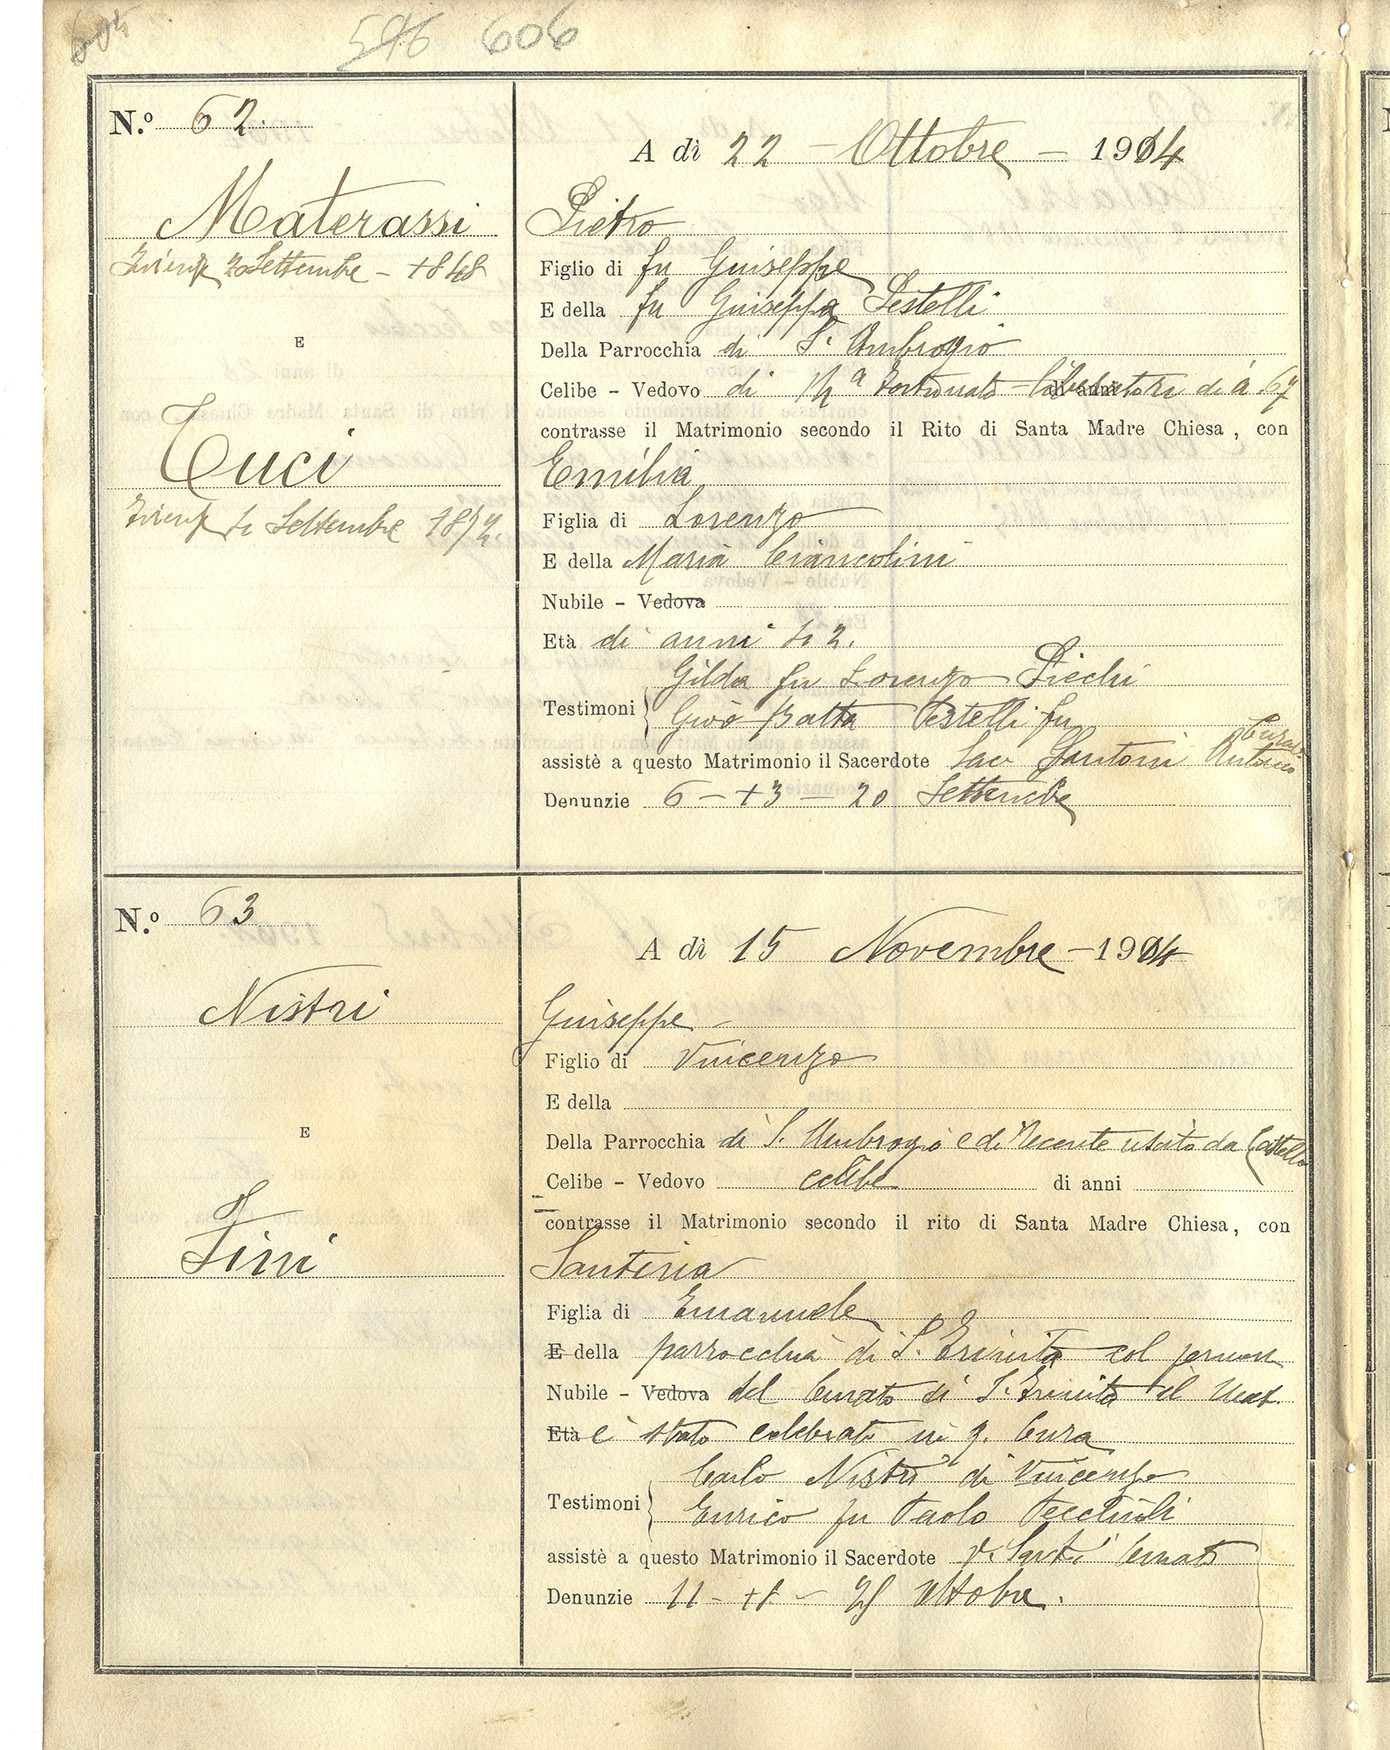 596 606
N.º 62
A dì 22 - Ottobre - 1914
Materassi
Pietro
Firenze 20 Settembre - 1848
Figlio di fu Giuseppe
E della fu Giuseppa Pestelli
E
Della Parrocchia di S. Ambrogio
Celibe - Vedovo di Mª Fortunata Liberatori di a. 67
contrasse il Matrimonio secondo il Rito di Santa Madre Chiesa, con
Tuci
Emilia
Firenze Settembre
Figlia di Lorenzo
E della Maria Ciancolini
Nubile - Vedova
Età di anni 42.
Gilda fu Lorenzo Piechi
Testimoni
Giov Batta Pestelli fu
assistè a questo Matrimonio il Sacerdote Sac Santoni Antonio Curato
Denunzie 6 - 13 - 20 Settembre
N.º 63
A dì 15 Novembre - 1914
Nistri
Giuseppe -
Figlio di Vincenzo
E della
E
Della Parrocchia di S. Ambrogio e di recente uscito da Castello
Celibe - Vedovo celibe di anni
contrasse il Matrimonio secondo il rito di Santa Madre Chiesa, con
Fini
Santina
Figlia di Emanuele
E della parrocchia di S. Trinita col
Nubile - Vedova del Curato di S. Trinita il
Età è stato celebrato in q. Cura
Carlo Nistri di Vincenzo
Testimoni
Enrico fu Paolo
assistè a questo Matrimonio il Sacerdote Curato
Denunzie 11 - 18 - 25 Ottobre.